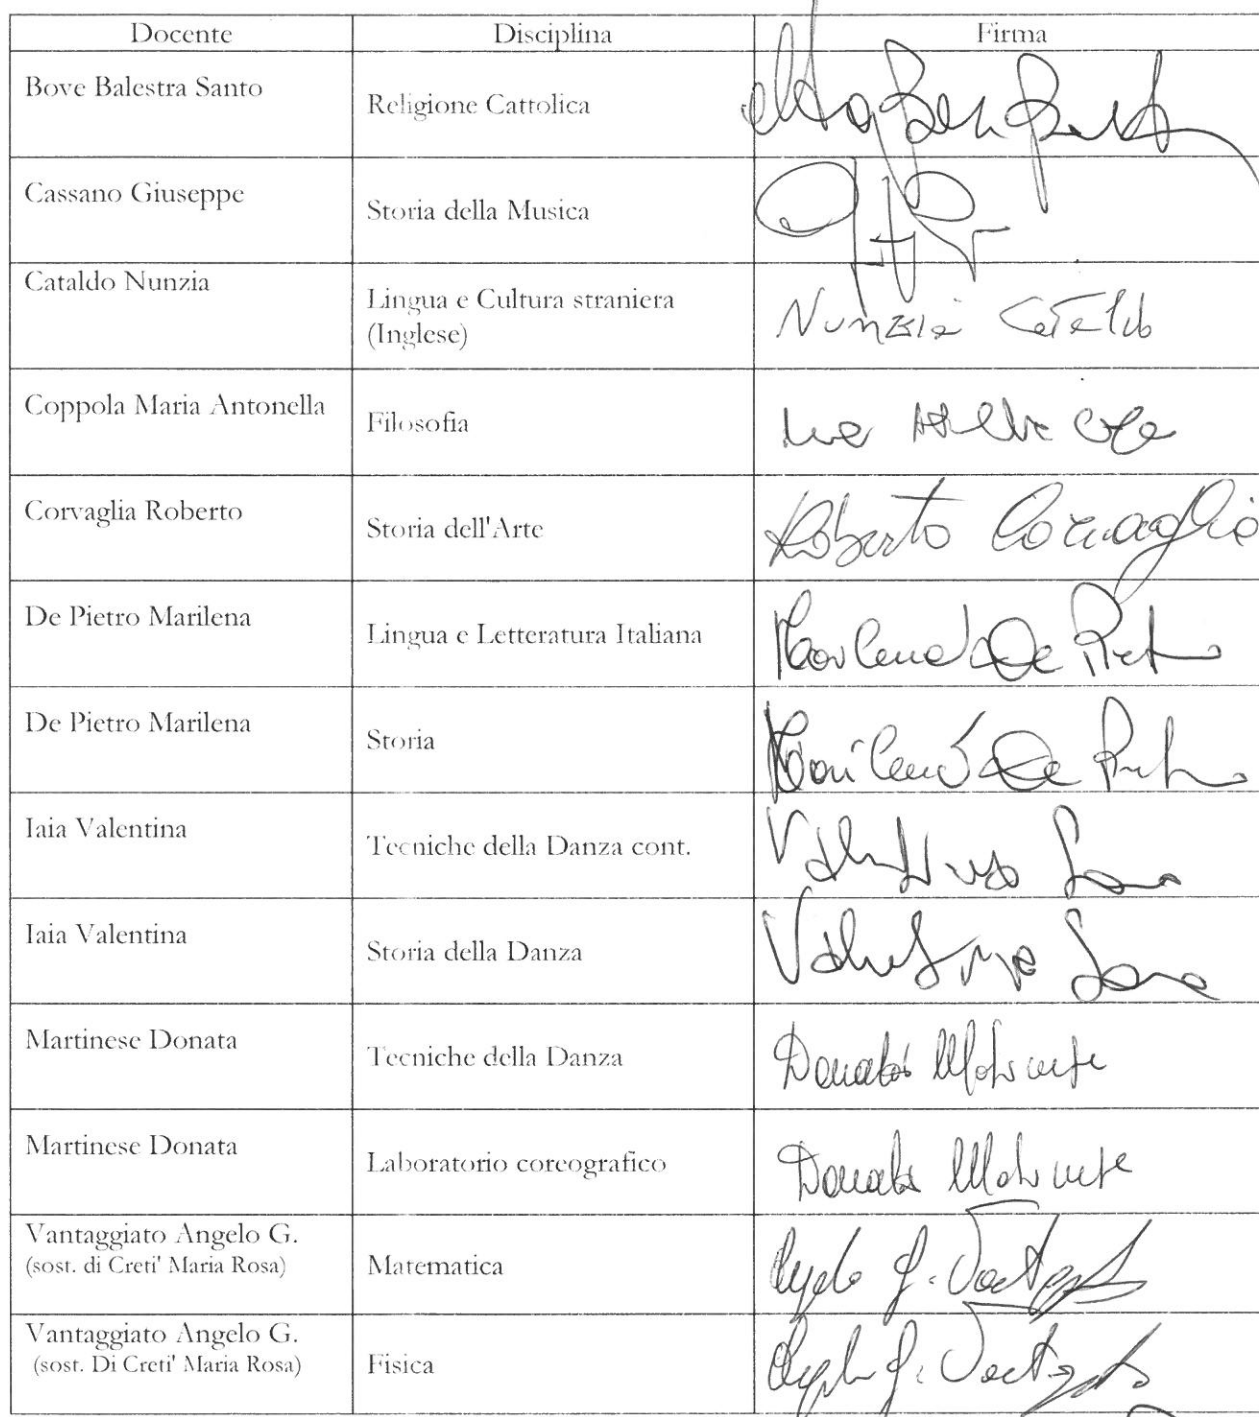 Docente Disciplina Firma
Bove Balestra Santo
Religione Cattolica
Cassano Giuseppe
Storia della Musica
Cataldo Nunzia
Lingua e Cultura straniera
(Inglese)
Nunzia Cataldo
Coppola Maria Antonella
Filosofia
Corvaglia Roberto
Storia dell'Arte
Roberto Corvaglia
De Pietro Marilena
Lingua e Letteratura Italiana
Marilena De Pietro
De Pietro Marilena
Storia
Marilena De Pietro
Iaia Valentina
Tecniche della Danza cont.
Valentina Iaia
Iaia Valentina
Storia della Danza
Valentina Iaia
Martinese Donata
Tecniche della Danza
Donata Martinese
Martinese Donata
Laboratorio coreografico
Donata Martinese
Vantaggiato Angelo G.
(sost. di Creti' Maria Rosa)
Matematica
Angelo G. Vantaggiato
Vantaggiato Angelo G.
(sost. Di Creti' Maria Rosa)
Fisica
Angelo G. Vantaggiato